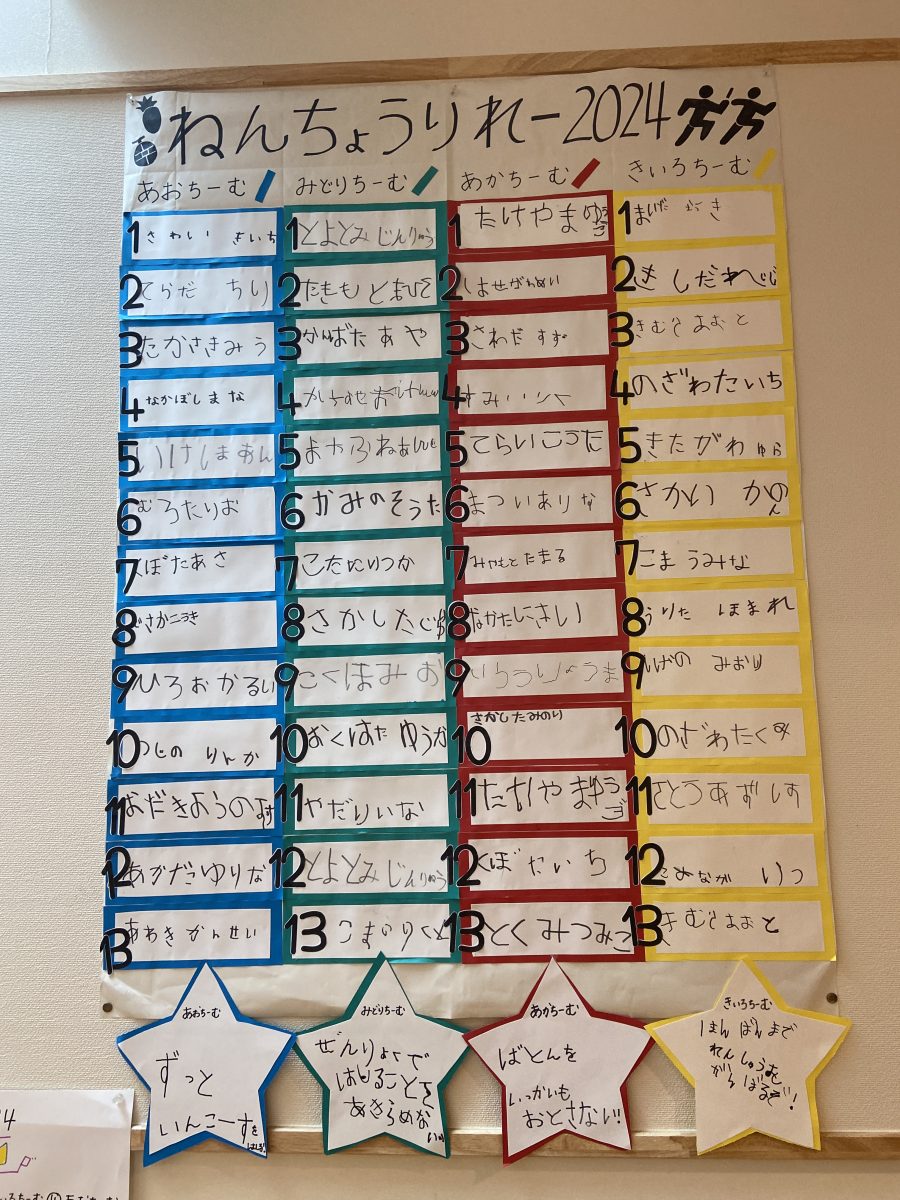 ねんちょうりれー2024
あおちーむ
1 さわい きいち
2 てらだ ちり
3 たかさきみう
4 なかぼしまな
5 いけしまあん
6 むろたりお
7 くぼたあさ
8 さかこうき
9 ひろおかるい
10 つじの りんか
11 おだきようのすけ
12 あかだゆりな
13 あわきかんせい
みどりちーむ
1 とよとみじんりゅう
2 たきもと
3 かんばた あや
4
5
6 かみのそうた
7 こたにりつか
8 さかした
9 こくほみお
10 おくはた ゆうか
11 やだりいな
12 とよとみじんりゅう
13 こまのりく
あかちーむ
1 たけやまゆうご
2 はせがわめい
3 さわだすず
4 すみいりく
5 てらいこうた
6 まついありな
7 みやもとたまる
8 なかたにさい
9
10 さかしたみのり
11 たけやまゆうご
12 くぼたいち
13 とくみつ
きいろちーむ
1 まいだ
2 きしだ
3 きむらあおと
4 のざわたいち
5 きたがわゆら
6 さかい かのん
7 こまうみな
8 うりたほまれ
9 いけの みおり
10 のざわたくみ
11 さとうあずしす
12 こめなが いっ
13 きむらあおと
あおちーむ
ずっと
いんこーすを
はしる!
みどりちーむ
ぜんりょくで
はしることを
あきらめな
いの
あかちーむ
ばとんを
いっかいも
おとさない!
きいろちーむ
ほんばんまで
れんしゅうを
がんばるぞ!!